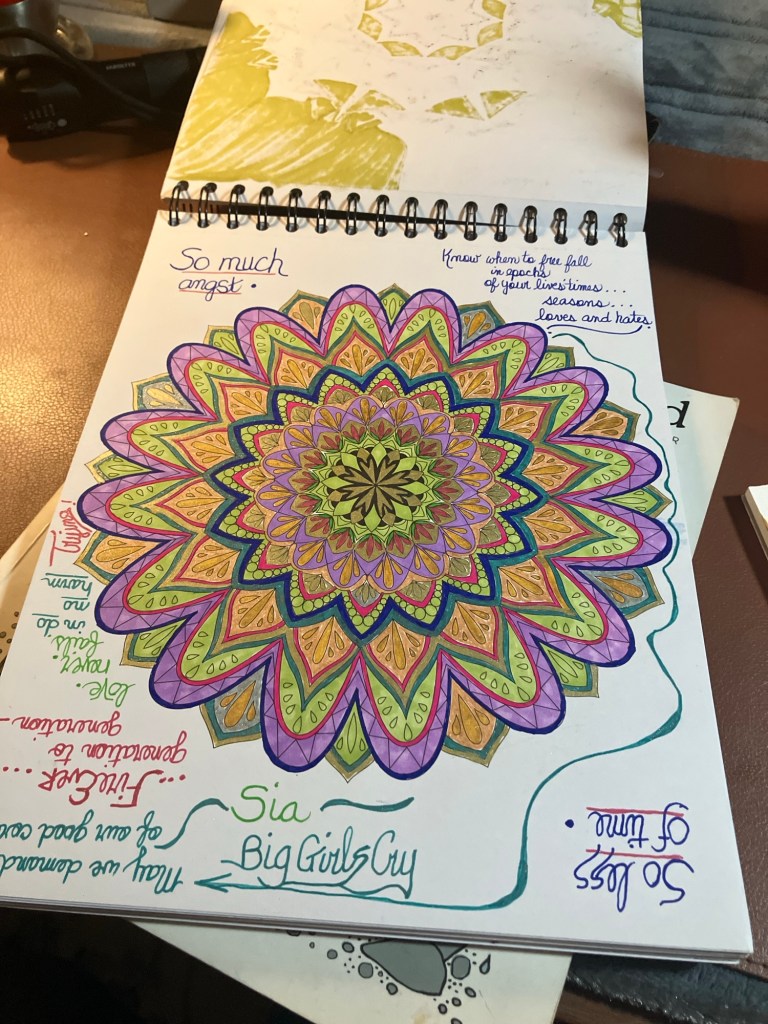 So much
angst.
Know when to free fall
in epochs
of your lives' times...
seasons...
loves and hates.
Sia
Big Girls Cry
So less
of time.
May we demand
of our good
...FireEver...
generation to
generation-
love.
never
fails
in do
no
harm
d